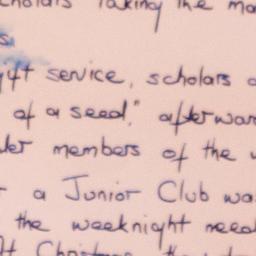 taking the
service, scholars
of a seed," afterwar
members of the
a Junior Club wa
the weeknight need